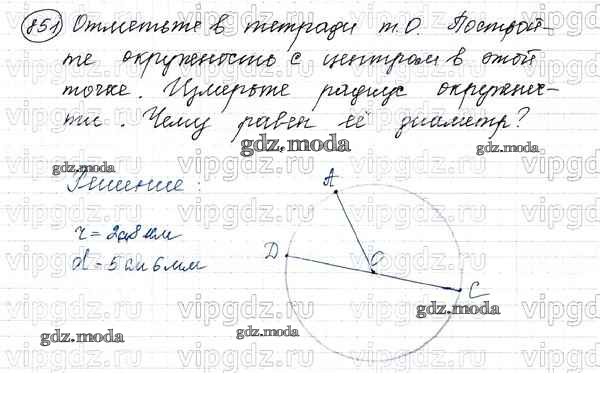 851 Отметьте в тетради т.О. Построй-
те окружность с центром в этой
точке. Измерьте радиус окружнос-
ти. Чему равен её диаметр?
gdz.moda
gdz.moda
gdz.moda
Решение:
A
r = 2см8мм
D
O
d = 5см6мм
C
gdz.moda
gdz.moda
gdz.moda
vipgdz.ru